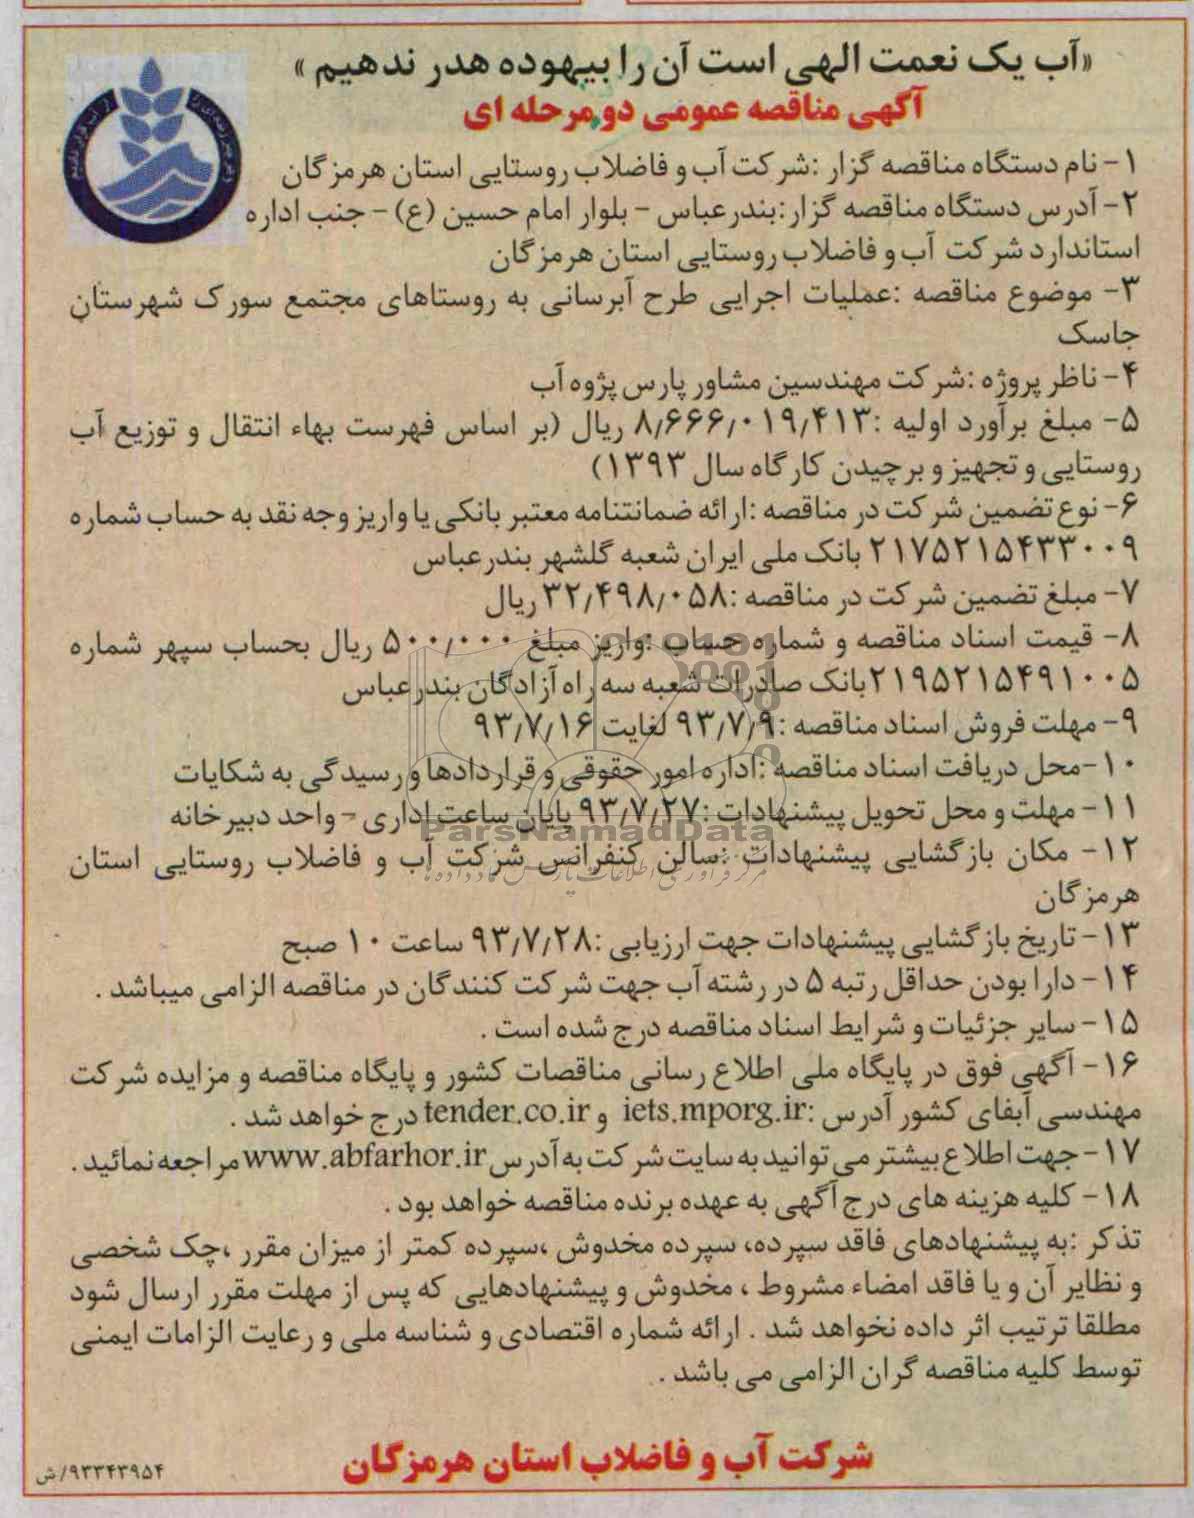 «آب یک نعمت الهی است آن را بیهوده هدر ندهیم»
آگهی مناقصه عمومی دو مرحله ای
۱- نام دستگاه مناقصه گزار :شرکت آب و فاضلاب روستایی استان هرمزگان
۲- آدرس دستگاه مناقصه گزار:بندرعباس - بلوار امام حسین (ع) - جنب اداره
استاندارد شرکت آب و فاضلاب روستایی استان هرمزگان
۳- موضوع مناقصه :عملیات اجرایی طرح آبرسانی به روستاهای مجتمع سورک شهرستان
جاسک
۴- ناظر پروژه :شرکت مهندسین مشاور پارس پژوه آب
۵- مبلغ برآورد اولیه :۸٫۶۶۶٫۰۱۹٫۴۱۳ ریال (بر اساس فهرست بهاء انتقال و توزیع آب
روستایی و تجهیز و برچیدن کارگاه سال ۱۳۹۳)
۶- نوع تضمین شرکت در مناقصه :ارائه ضمانتنامه معتبر بانکی یا واریز وجه نقد به حساب شماره
۲۱۷۵۲۱۵۴۳۳۰۰۹ بانک ملی ایران شعبه گلشهر بندرعباس
۷- مبلغ تضمین شرکت در مناقصه :۳۲٫۴۹۸٫۰۵۸ ریال
۸- قیمت اسناد مناقصه و شماره حساب :واریز مبلغ ۵۰۰٫۰۰۰ ریال بحساب سپهر شماره
۲۱۹۵۲۱۵۴۹۱۰۰۵بانک صادرات شعبه سه راه آزادگان بندرعباس
۹- مهلت فروش اسناد مناقصه :۹۳٫۷٫۹ لغایت ۹۳٫۷٫۱۶
۱۰-محل دریافت اسناد مناقصه :اداره امور حقوقی و قراردادها و رسیدگی به شکایات
۱۱- مهلت و محل تحویل پیشنهادات :۹۳٫۷٫۲۷ پایان ساعت اداری - واحد دبیرخانه
ParsNamadData
۱۲- مکان بازگشایی پیشنهادات :سالن کنفرانس شرکت آب و فاضلاب روستایی استان
هرمزگان
۱۳- تاریخ بازگشایی پیشنهادات جهت ارزیابی :۹۳٫۷٫۲۸ ساعت ۱۰ صبح
۱۴- دارا بودن حداقل رتبه ۵ در رشته آب جهت شرکت کنندگان در مناقصه الزامی میباشد .
۱۵- سایر جزئیات و شرایط اسناد مناقصه درج شده است .
۱۶- آگهی فوق در پایگاه ملی اطلاع رسانی مناقصات کشور و پایگاه مناقصه و مزایده شرکت
مهندسی آبفای کشور آدرس :iets.mporg.ir و tender.co.ir درج خواهد شد .
۱۷- جهت اطلاع بیشتر می توانید به سایت شرکت به آدرس www.abfarhor.ir مراجعه نمائید .
۱۸- کلیه هزینه های درج آگهی به عهده برنده مناقصه خواهد بود .
تذکر :به پیشنهادهای فاقد سپرده، سپرده مخدوش ،سپرده کمتر از میزان مقرر ،چک شخصی
و نظایر آن و یا فاقد امضاء مشروط ، مخدوش و پیشنهادهایی که پس از مهلت مقرر ارسال شود
مطلقا ترتیب اثر داده نخواهد شد . ارائه شماره اقتصادی و شناسه ملی و رعایت الزامات ایمنی
توسط کلیه مناقصه گران الزامی می باشد .
شرکت آب و فاضلاب استان هرمزگان
۹۳۳۴۳۹۵۴/ش